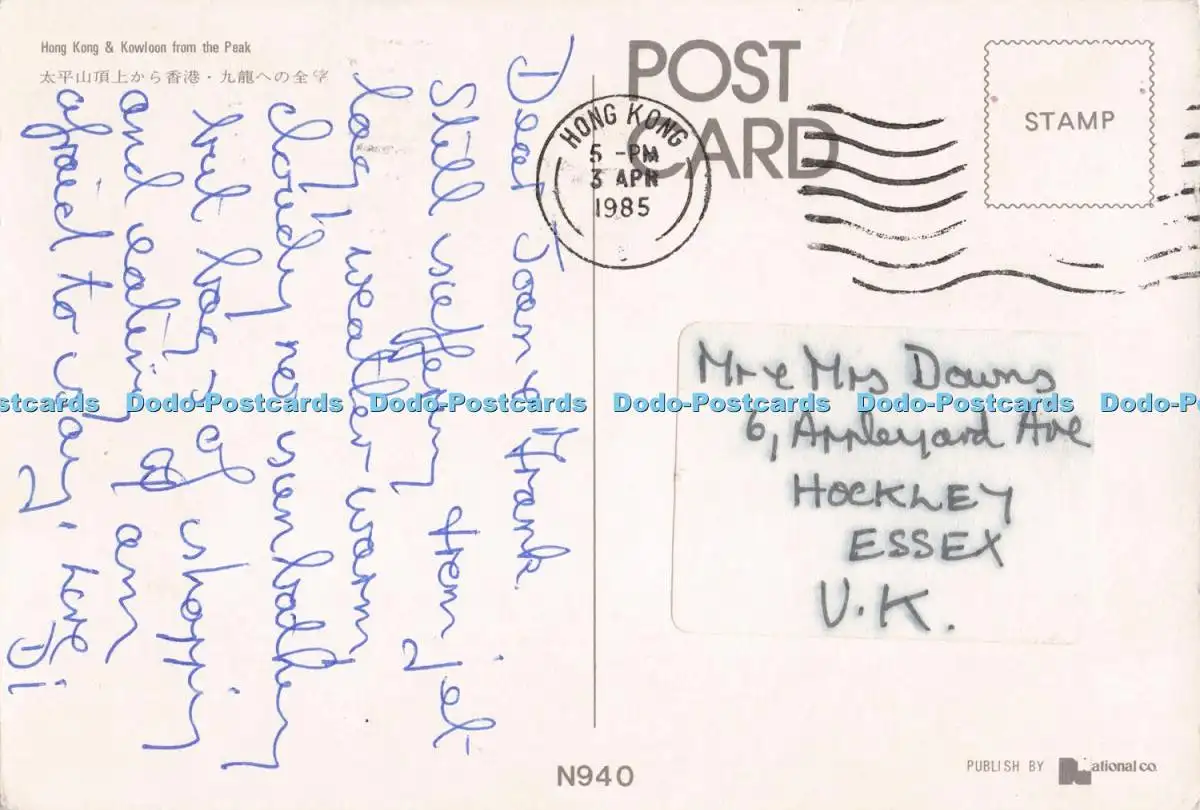 Hong Kong & Kowloon from the Peak
太平山頂上から香港・九龍への全守
POST
CARD
STAMP
HONG KONG
5 -PM
3 APR
1985
Dear Joan & Frank.
Still suffering from jet
lag, weather warm
cloudy no sunbathing
but lots of shopping
and eating am
afraid to say. Love
Di
Mr & Mrs Downs
6, Appleyard Ave
HOCKLEY
ESSEX
U.K.
Dodo-Postcards Dodo-Postcards Dodo-Postcards Dodo-Postcards Dodo-Postcards
N940
PUBLISH BY National co.